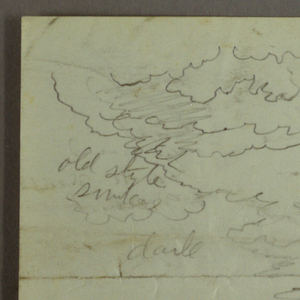 old style
smoke
dark